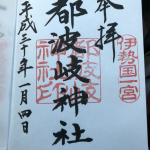 奉拝
伊勢国一宮
都波岐神社
平成三十年一月四日